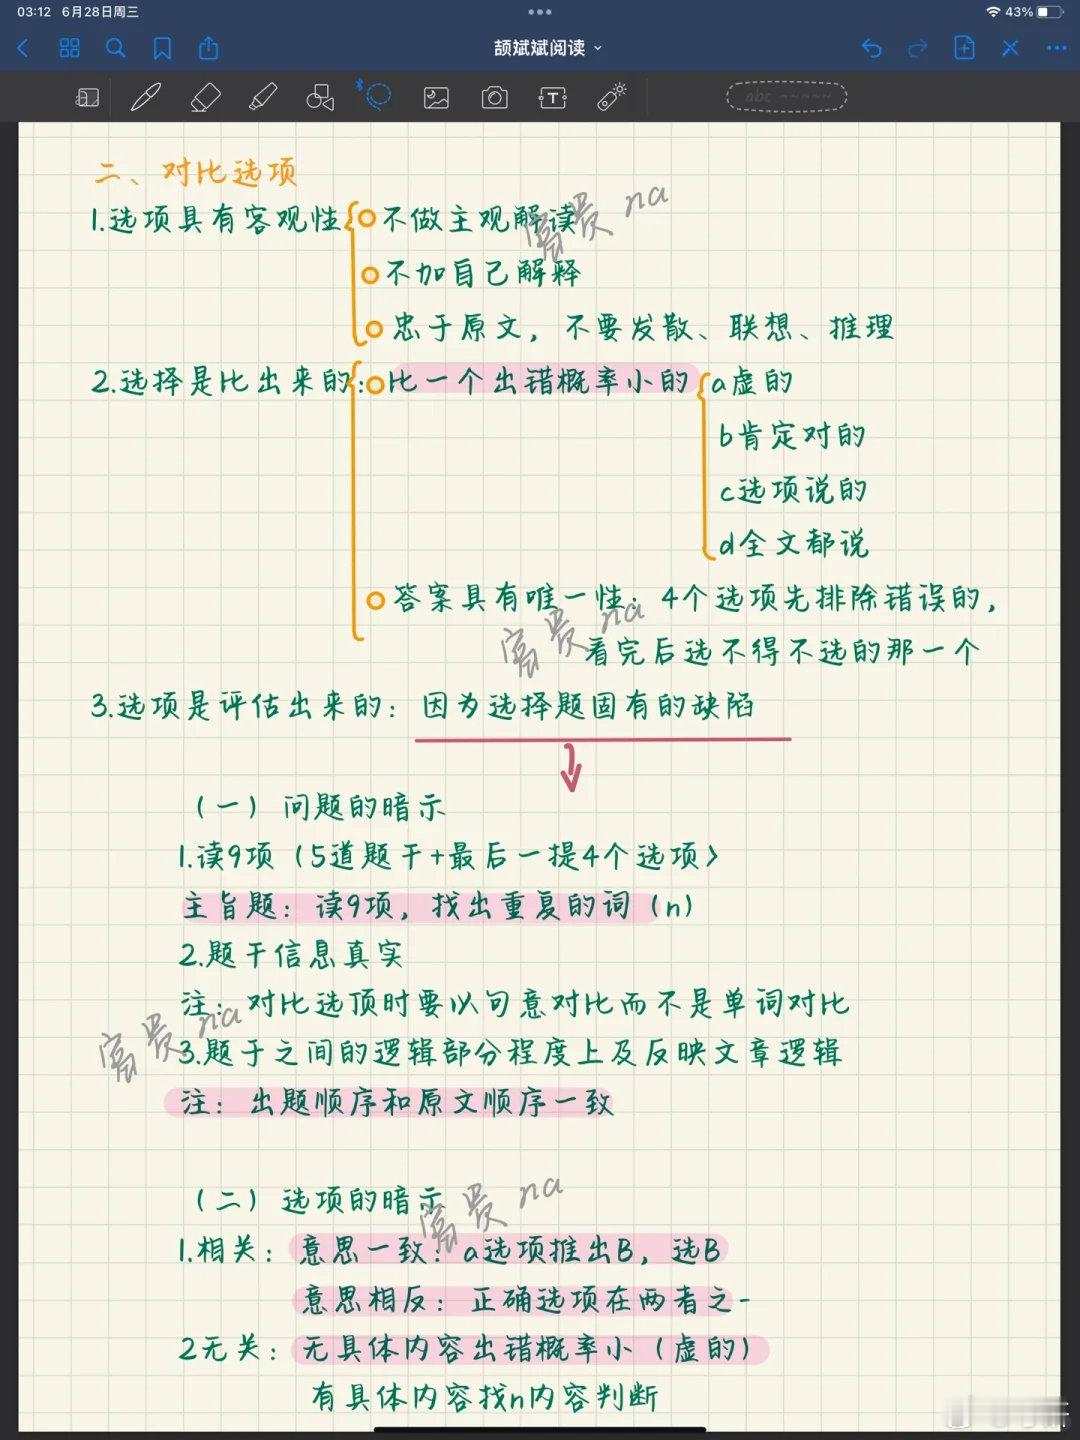 03:12 6月28日周三
43%
颉斌斌阅读
abc
二、对比选项
1.选项具有客观性
不做主观解读
不加自己解释
忠于原文，不要发散、联想、推理
2.选择是比出来的：比一个出错概率小的
a虚的
b肯定对的
c选项说的
d全文都说
答案具有唯一性：4个选项先排除错误的，
看完后选不得不选的那一个
3.选项是评估出来的：因为选择题固有的缺陷
（一）问题的暗示
1.读9项（5道题干+最后一提4个选项〉
主旨题：读9项，找出重复的词（n）
2.题干信息真实
注：对比选顶时要以句意对比而不是单词对比
3.题于之间的逻辑部分程度上及反映文章逻辑
注：出题顺序和原文顺序一致
（二）选项的暗示
1.相关：意思一致：a选项推出B，选B
意思相反：正确选项在两者之一
2无关：无具体内容出错概率小（虚的）
有具体内容找n内容判断
富贵na
富贵na
富贵na
富贵na